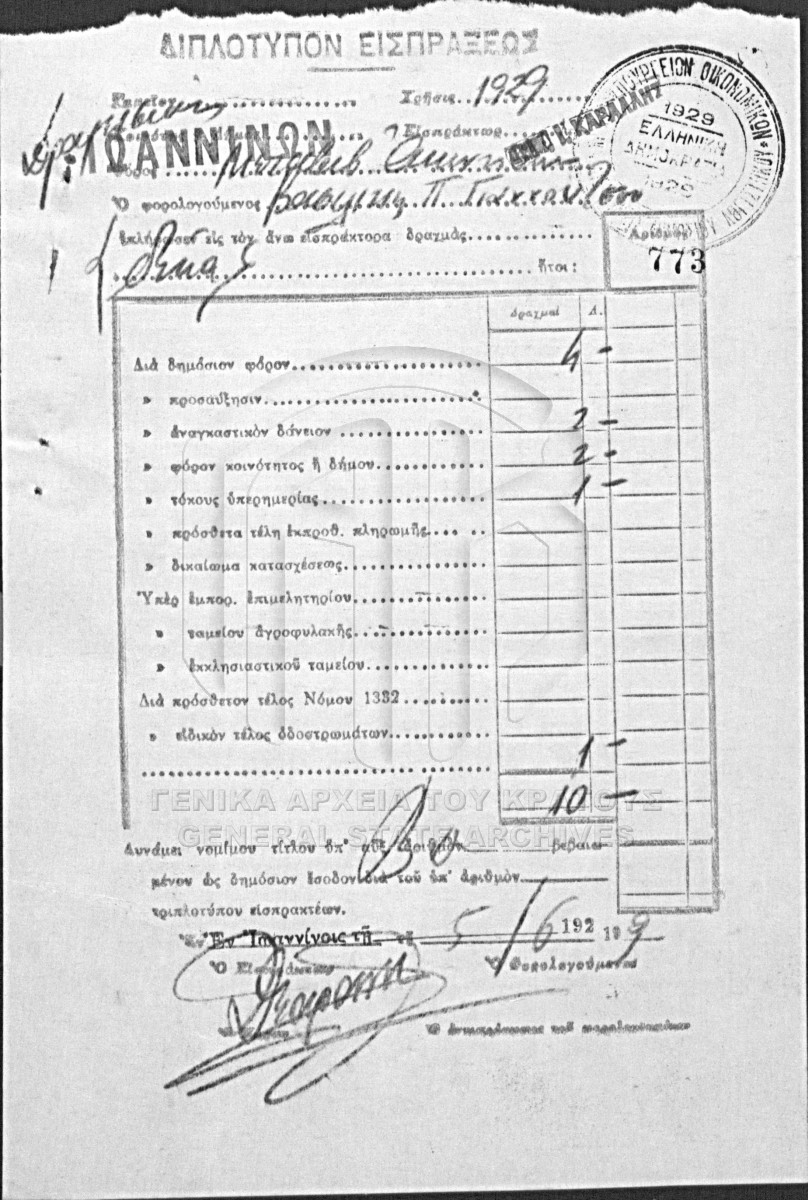 ΔΙΠΛΟΤΥΠΟΝ ΕΙΣΠΡΑΞΕΩΣ
Χρῆσις 1929
ΙΩΑΝΝΙΝΩΝ
Εἰσπράκτωρ
ΥΠΟΥΡΓΕΙΟΝ ΟΙΚΟΝΟΜΙΚΩΝ
1929
ΕΛΛΗΝΙΚΗ
ΔΗΜΟΚΡΑΤΙΑ
1929
Ὁ φορολογούμενος
ἐπλήρωσεν εἰς τὸν ἄνω εἰσπράκτορα δραχμὰς
Ἀριθμὸς
773
δέκα
ἤτοι :
Δραχμαὶ Λ.
Διὰ δημόσιον φόρον 4 -
» προσαύξησιν
» ἀναγκαστικὸν δάνειον 2 -
» φόρον κοινότητος ἢ δήμου 2 -
» τόκους ὑπερημερίας 1 -
» πρόσθετα τέλη ἐκπροθ. πληρωμῆς
» δικαίωμα κατασχέσεως
Ὑπὲρ ἐμπορ. ἐπιμελητηρίου
» ταμείου ἀγροφυλακῆς
» ἐκκλησιαστικοῦ ταμείου
Διὰ πρόσθετον τέλος Νόμου 1332
» εἰδικὸν τέλος ὁδοστρωμάτων
1 -
10 -
ΓΕΝΙΚΑ ΑΡΧΕΙΑ ΤΟΥ ΚΡΑΤΟΥΣ
GENERAL STATE ARCHIVES
Δυνάμει νομίμου τίτλου ὑπ' αὔξ. ἀριθμὸν βεβαιω
μένου ὡς δημόσιον ἔσοδον διὰ τοῦ ὑπ' ἀριθμὸν
τριπλοτύπου εἰσπρακτέων.
Ἐν Ἰωαννίνοις τῇ 5/6 192 9
Ὁ Εἰσπράκτωρ Ὁ Φορολογούμενος
Ὁ ἀντιπρόσωπος τοῦ φορολογουμένου